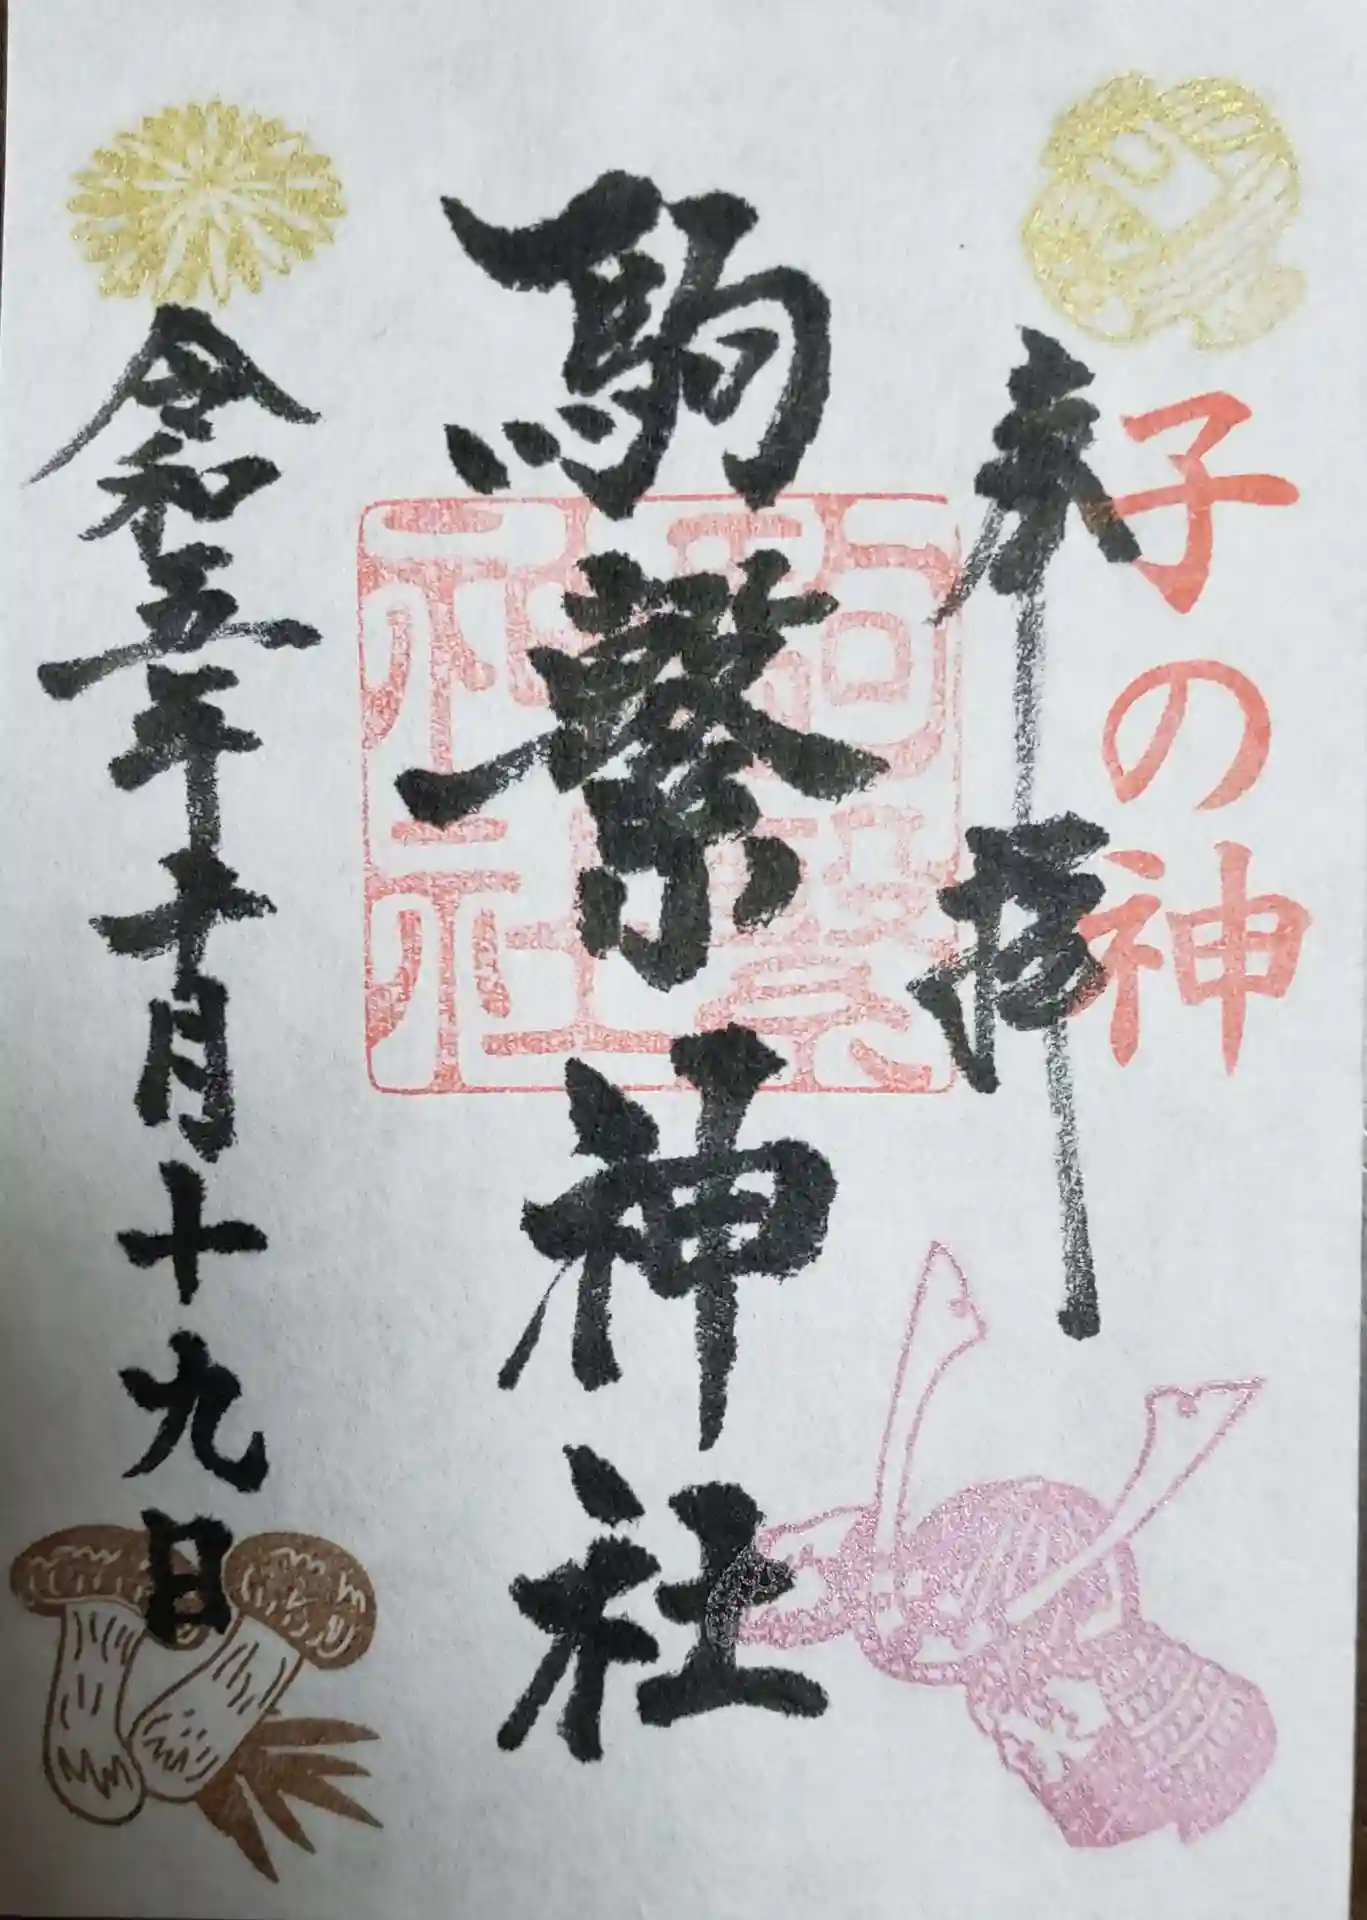 子の神
奉拝
駒繋神社
駒繋神社
令和五年十月十九日